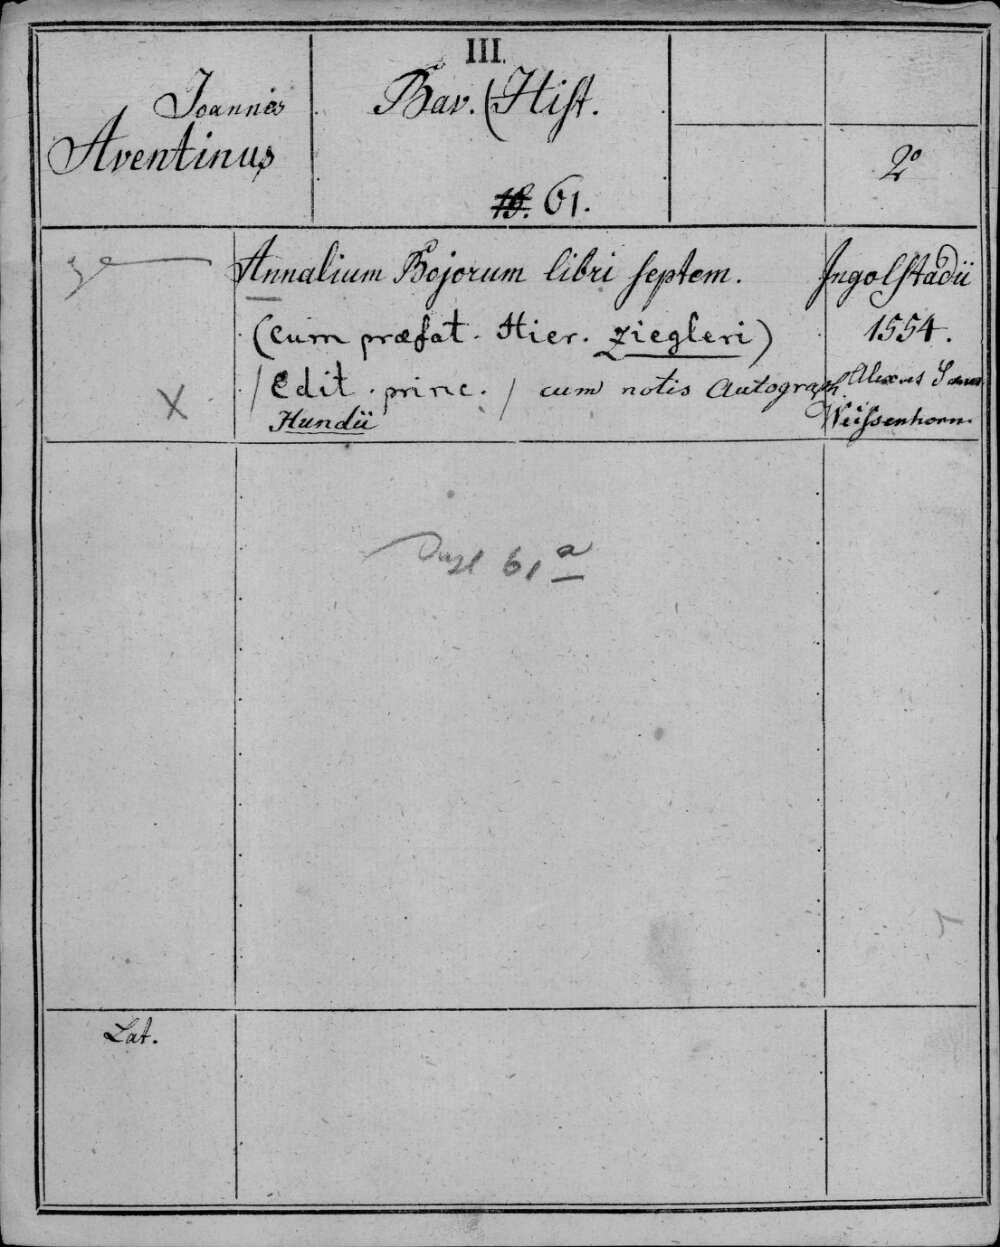 III.
Joannes
Aventinus
Bav. (Hist.
18. 61.
2°
Annalium Bojorum libri septem.
(cum præfat. Hier. Ziegleri)
/Edit. princ./ cum notis Autograph.
Hundii
Ingolstadii
1554.
Alex. et
Weissenhorn.
61 a
Lat.